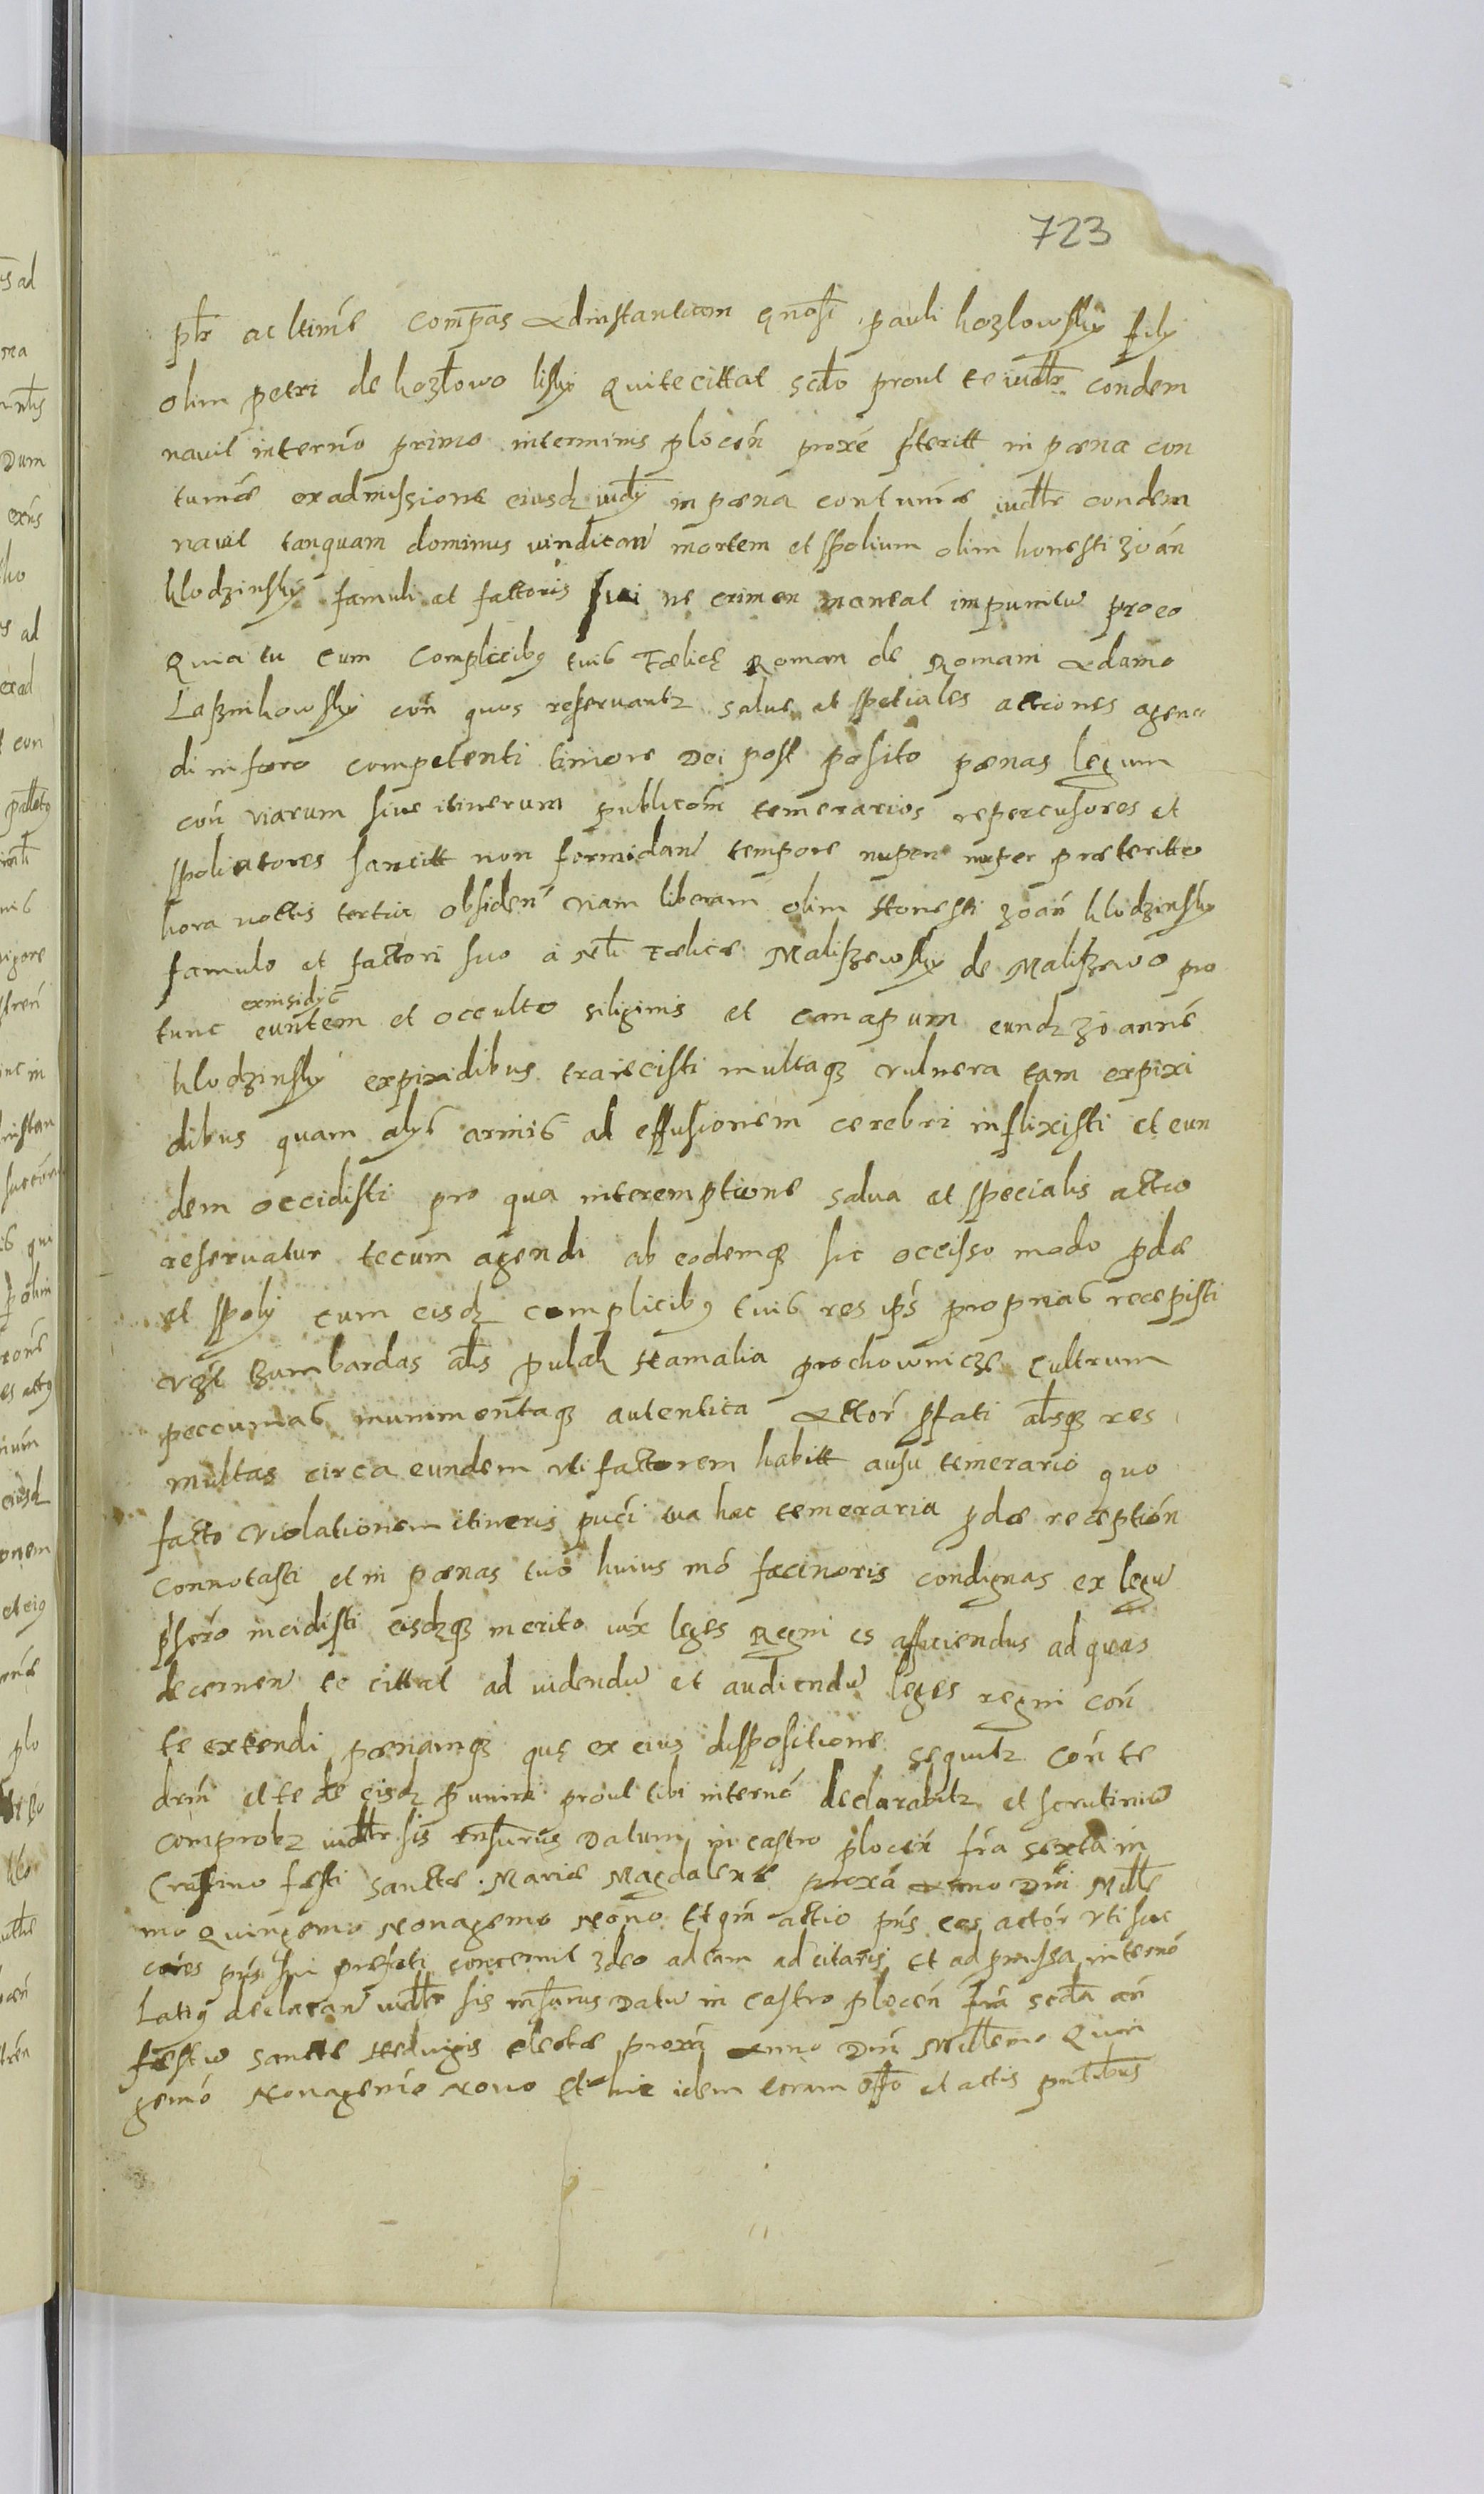 723
pltr ac ltime compas Adinstantiam gnosi pauli kozlowsky fily
olim petri de kozlowo lisky Qui te cittat scdo prout te iudltr condem
navit in terno primo in terminis plocen proxe pteritt in paena con
tumae ex admissione eiusdz iudy in paena contumae iudltr condem
navit tanquam dominus vindican mortem et spolium olim honesti Joan
klodzinsky famuli et factoris sui ne crimen maneat impunitu pro eo
Quia tu cum Complicibq tuis Faelice Roman de Romani Adamo
Lasznikowsky con quos reservantz salue et spetiales actiones agen
di in foro competenti timore Dei post posito paenas legum
con viarum sive itinerum publicom temerarios repercusores et
spoliatores sancitt non formidan tempore nupere nuper praeteritto
hora noctis tertia obsiden viam liberam olim Honesti Joan klodzinsky
famulo et factori suo a Nli Faelice Maliszewsky de Maliszewo pro
exinsidys
tunc euntem et occulto siliginis et canapum eundz Joanne
klodzinsky expixidibus traiecisti multaqz vulnera tam expixi
dibus quam alys armis ad effusionem cerebri inflixisti et eun
dem occidisti pro qua interemptione salva et specialis actio
reservatur tecum agendi ab eodemqz sic occisso modo pdae
et spoly cum eisdz complicibq tuis res ips proprias recepisti
vzt Bombardas als pulak Hamalia prochownicze Cultrum
peccunias munimentaqz autentica Actor pfati alsqz res
multas circa eundem uti factorem habitt ausu temerario quo
facto violationem itineris puci tua hac temeraria pdae reception
connotasti et in paenas tuo huius mo facinoris condignas ex legu
pscro incidisti eisdzqz merito iux leges Regni es afficiendus ad quas
decernen te cittat ad videndu et audiendu leges regni con
te extendi paenamqz que ex eius dispositione sequitz con te
drni et te de eisdz punire prout tibi interno declarabitz et scrutiniu
comprobz iudltr sis tnsurus Datum in castro plocen fra sexta in
Crastino festi sanctae Mariae Magdalenae proxa Anno Dni Mille
mo Quingemo Nonagemo Nono Et qm actio pns eos actor uti suc
cores pns sui prefati concernit Ideo ad eam ad citaris Et ad pmissa interno
Latiq declaran iudltr sis rnsurus Datu in Castro plocen fra secda an
festu sanctae Hedvigis electae proxa Anno Dni Millemo Quin
gemo Nonagemo Nono Et hic idem coram offo et actis pntibus